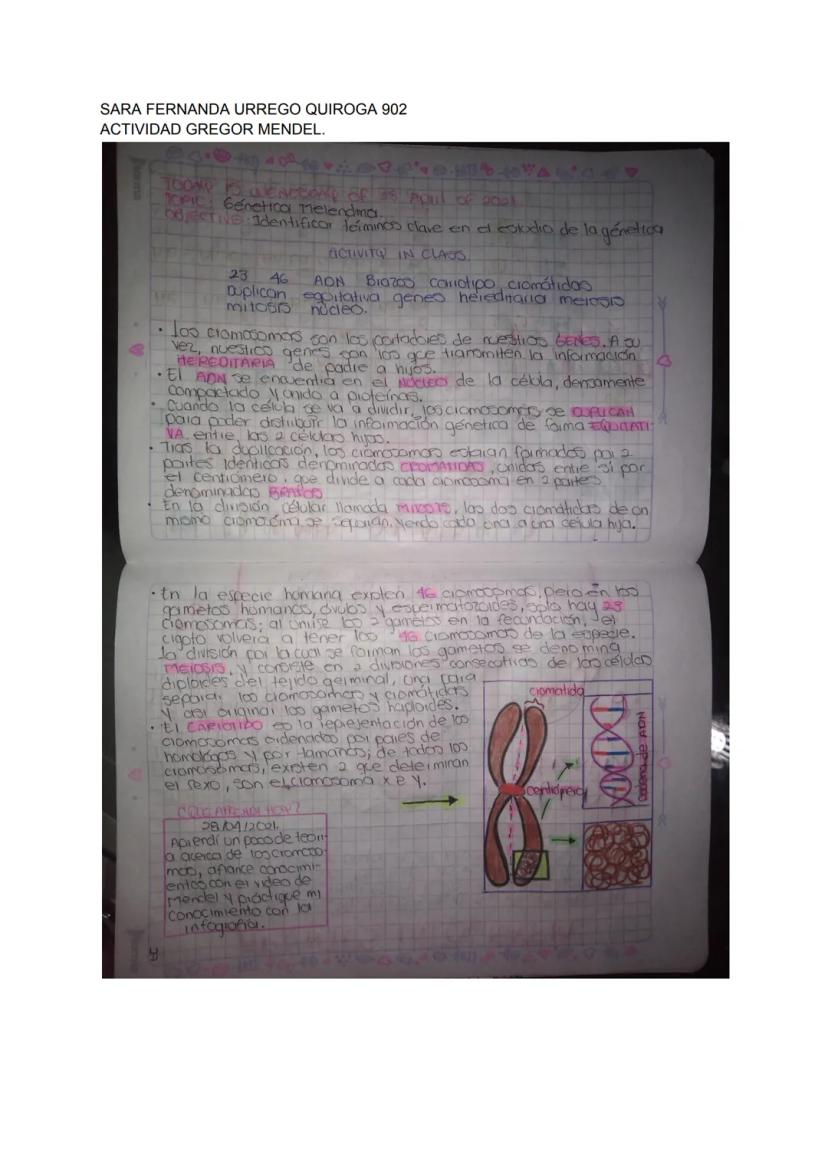 SARA FERNANDA URREGO QUIROGA 902
ACTIVIDAD GREGOR MENDEL.
TODAY IS of 28 April of 2021
TOPIC: Génetica Melendina.
OBJECTIVE: Identificar términos clave en el estudio de la génetica
ACTIVITY IN CLASS
23 46 ADN Brazos cariotipo cromátidas
Duplican equitativa genes hereditaria meiosis
mitosis núcleo.
• Los cromosomas son los portadores de nuestros GENES. A su
vez, nuestros genes son los que transmiten la información
HEREDITARIA de padre a hijos.
• El ADN se encuentra en el NÚCLEO de la célula, densamente
compactado y unido a proteínas.
• Cuando la célula se va a dividir, los cromosomas se DUPLICAN
para poder distribuir la información génetica de forma EQUITATI-
VA entre las 2 células hijas.
• Tras la duplicación, los cromosomas estaran formados por 2
partes identicas denominadas CROMATIDAS, unidas entre sí por
el centrómero, que divide a cada cromosoma en 2 partes
denominadas BRAZOS
• En la división célular llamada MITOSIS, las dos cromátidas de un
mismo cromosoma se separan, yendo cada una a una celula hija.
• En la especie humana existen 46 cromosomas, pero en los
gametos humanos, óvulos y espermatozoides, solo hay 23
cromosomas; al unirse los 2 gametos en la fecundación, el
cigoto volverá a tener los 46 cromosomas de la especie.
la división por la cual se forman los gametos se denomina
MEIOSIS, y consiste en 2 divisiones consecutivas de las células
diploides del tejido germinal, una para
separar los cromosomas y cromátidas
y así originar los gametos haploides.
• El CARIOTIPO es la representación de los
cromosomas ordenados por pares de
homólogos y por tamaños; de todos los
cromosomas, existen 2 que determinan
el sexo, son el cromosoma x e y.
cromatida
centrómero
cadena de ADN
QUE APRENDI HOY?
28/04/2021.
Aprendí un poco de teori-
a acerca de los cromoso-
mas, afiance conocimi-
entos con el video de
Mendel y practique mi
conocimiento con la
infografía.